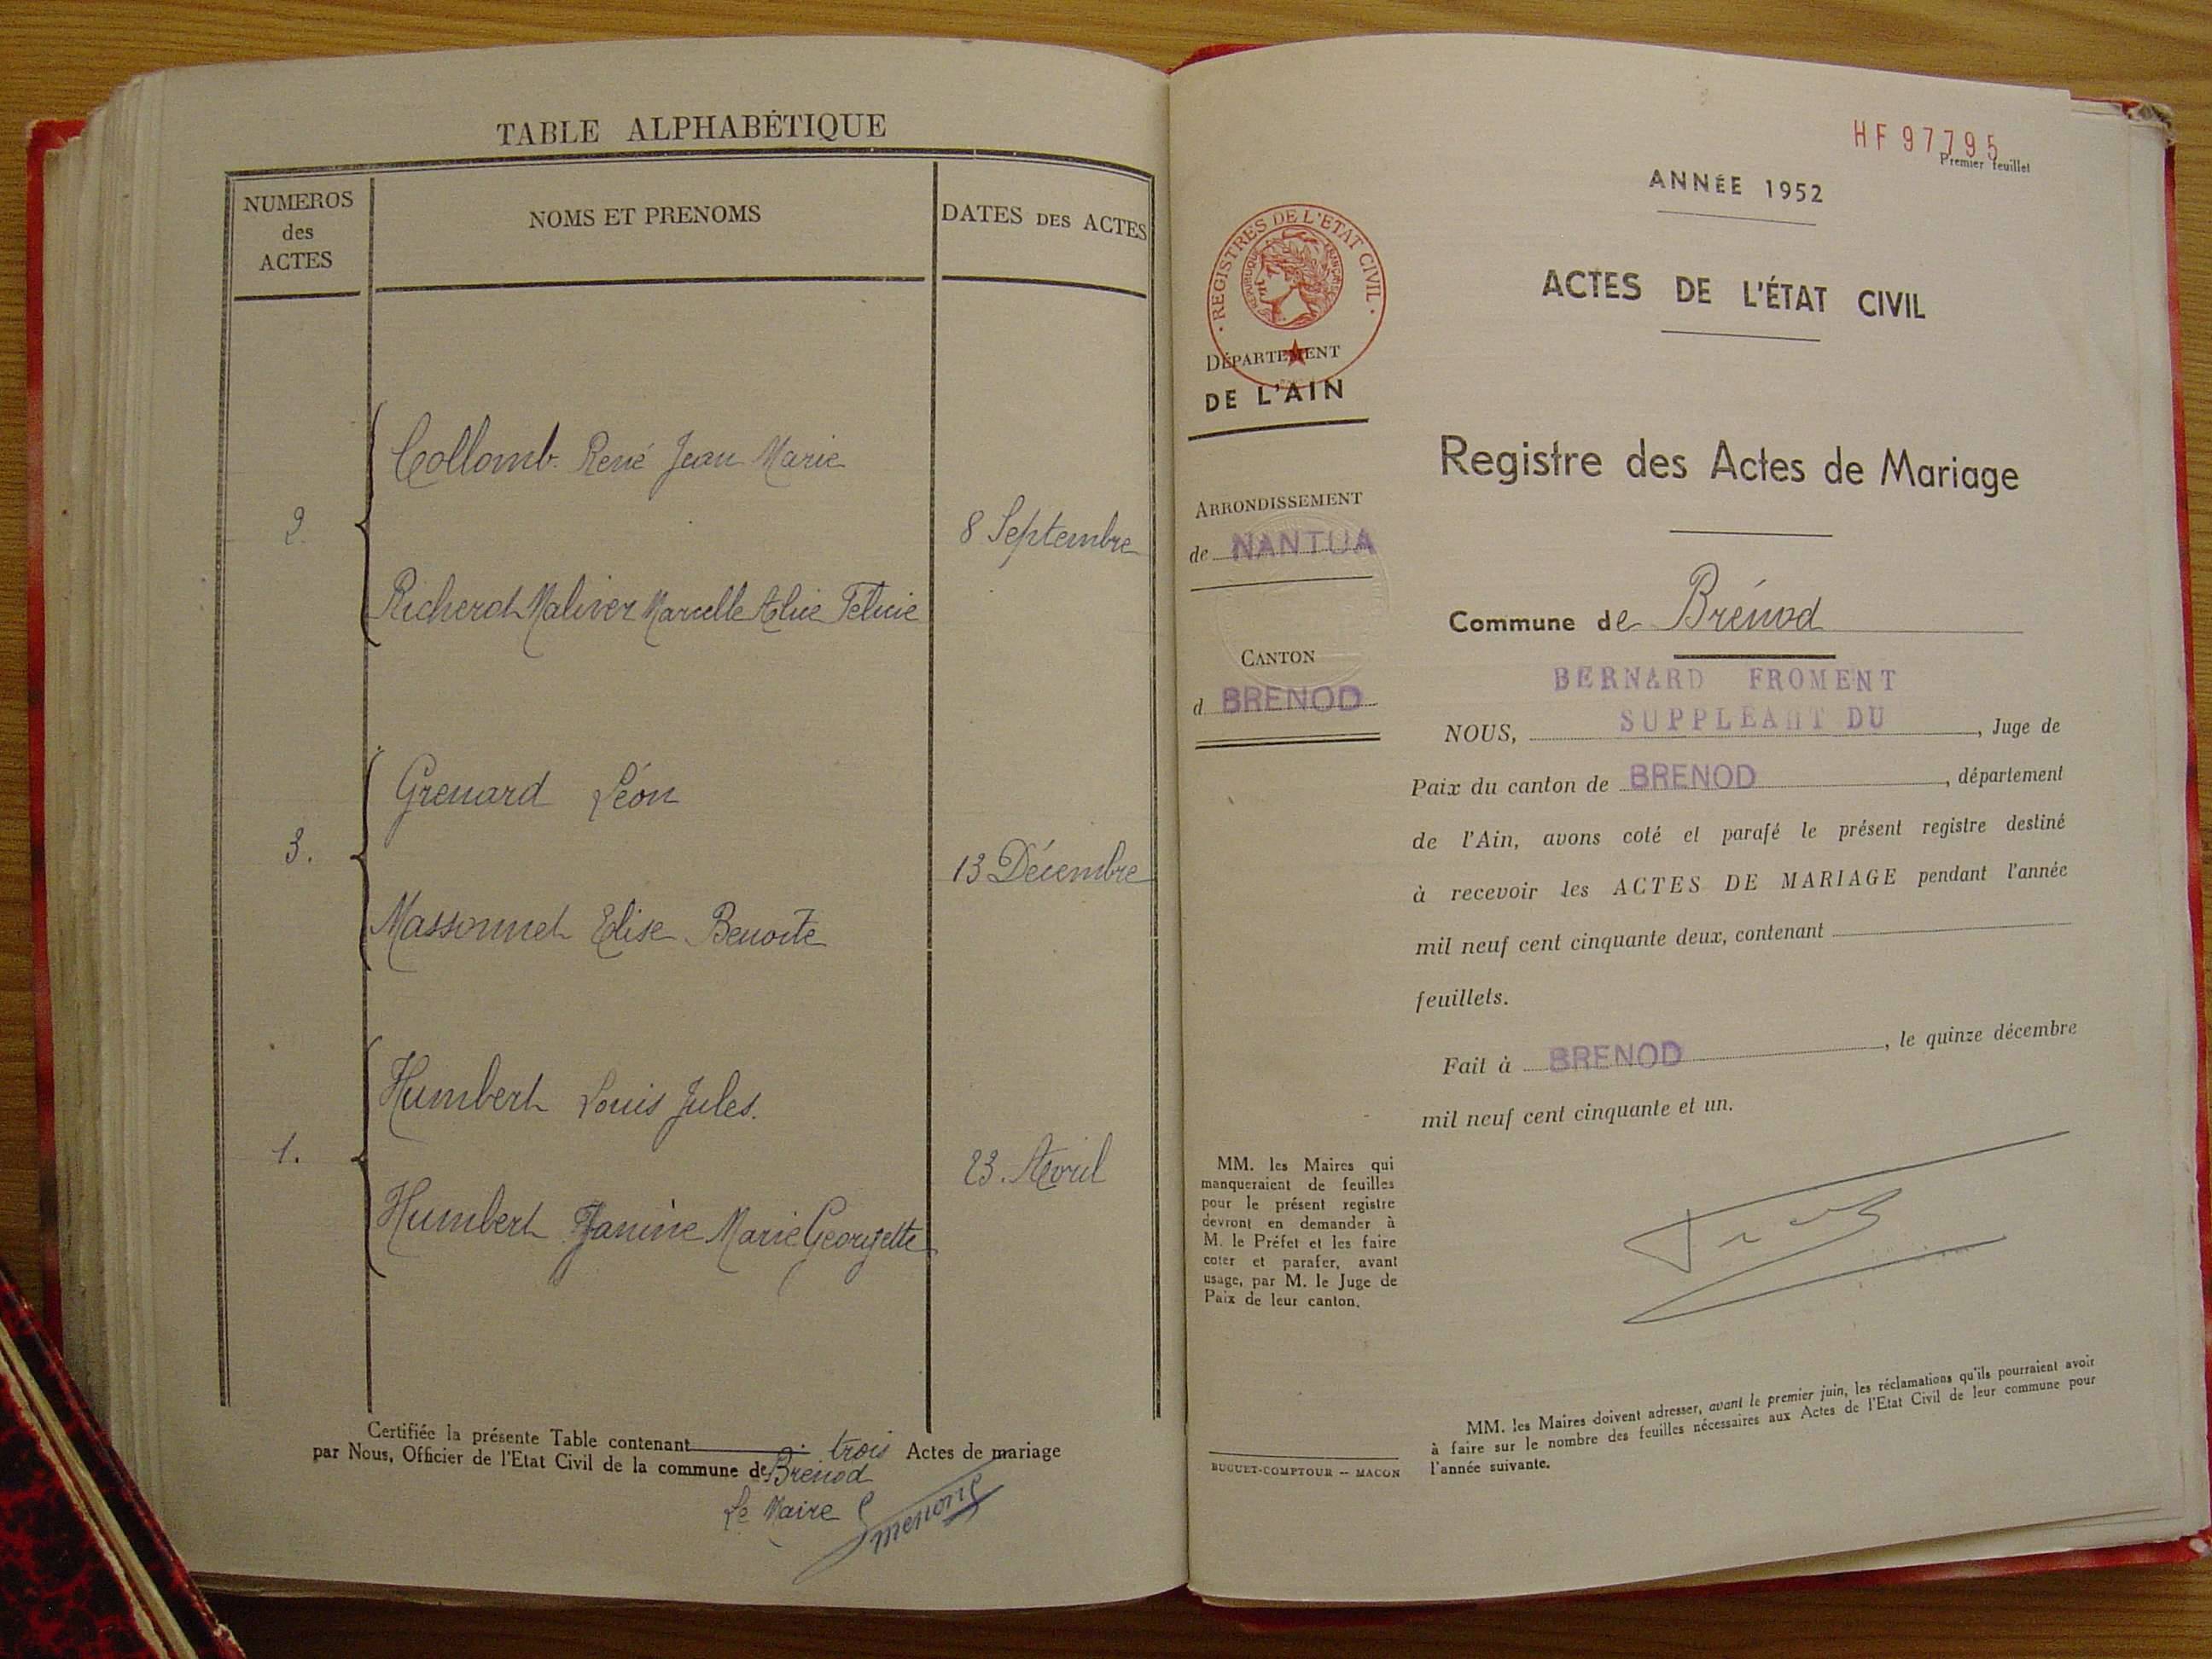 TABLE ALPHABÉTIQUE
NUMEROS
des
ACTES
NOMS ET PRENOMS
DATES DES ACTES
Collomb René Jean Marie
2.
8 Septembre
Richerot Maliver Marcelle Alice Félicie
Grenard Léon
3.
13 Décembre
Massonnet Elise Benoite
Humbert Louis Jules.
1.
23. Avril
Humbert Janine Marie Georgette
Certifiée la présente Table contenant trois Actes de mariage
par Nous, Officier de l'Etat Civil de la commune de Brénod
Le Maire
HF 97795
Premier feuillet
ANNÉE 1952
ACTES DE L'ÉTAT CIVIL
· REGISTRES DE L'ETAT CIVIL ·
REPUBLIQUE FRANÇAISE
DÉPARTEMENT
DE L'AIN
Registre des Actes de Mariage
ARRONDISSEMENT
de NANTUA
CANTON
d BRENOD
Commune de Brénod
BERNARD FROMENT
SUPPLÉANT DU
NOUS, , Juge de
Paix du canton de BRENOD , département
de l'Ain, avons coté et parafé le présent registre destiné
à recevoir les ACTES DE MARIAGE pendant l'année
mil neuf cent cinquante deux, contenant
feuillets.
Fait à BRENOD , le quinze décembre
mil neuf cent cinquante et un.
MM. les Maires qui
manqueraient de feuilles
pour le présent registre
devront en demander à
M. le Préfet et les faire
coter et parafer, avant
usage, par M. le Juge de
Paix de leur canton.
MM. les Maires doivent adresser, avant le premier juin, les réclamations qu'ils pourraient avoir
à faire sur le nombre des feuilles nécessaires aux Actes de l'Etat Civil de leur commune pour
l'année suivante.
BUGUET-COMPTOUR -- MACON